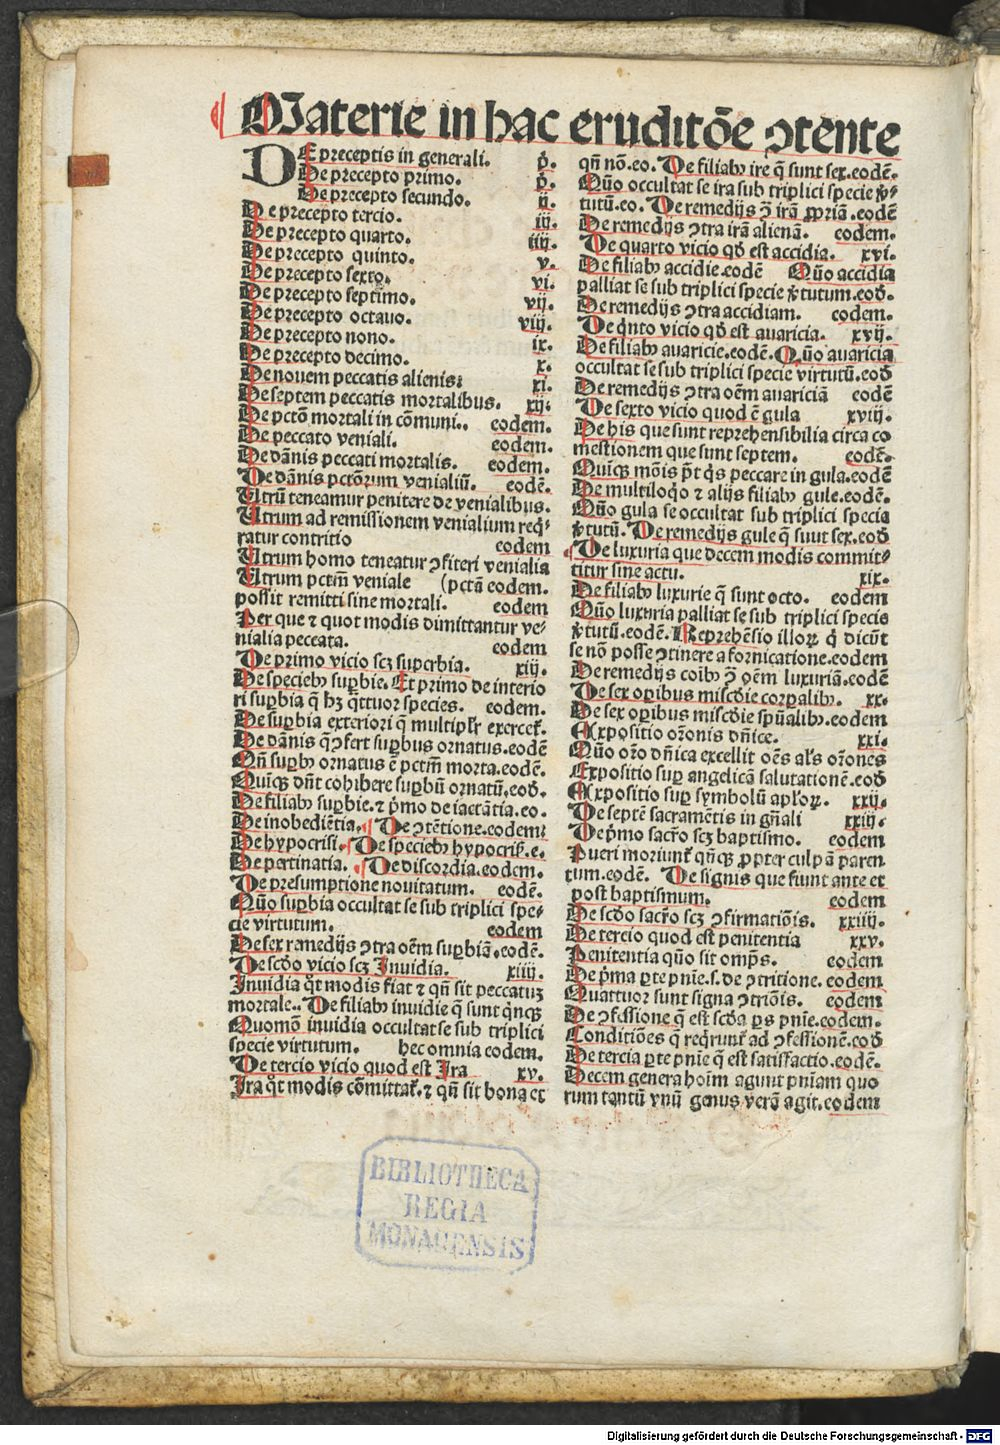 Materie in hac eruditōe ꝯtente
DE preceptis in generali. p̄.
De precepto primo. p̄.
De precepto secundo. ij.
De precepto tercio. iij.
De precepto quarto. iiij.
De precepto quinto. v.
De precepto sexto. vi.
De precepto septimo. vij.
De precepto octauo. viij.
De precepto nono. ix.
De precepto decimo. x.
De nouem peccatis alienis: xi.
De septem peccatis mortalibus. xij.
De pctōm mortali in cōmuni.. eodem.
De peccato veniali. eodem.
De dānis peccati mortalis. eodem.
De dānis pctōrum venialiū. eodē.
Utrū teneamur penitere de venialibus.
Utrum ad remissionem venialium req̄-
ratur contritio eodem
Utrum homo teneatur ꝯfiteri venialia
Utrum pctm̄ veniale (pctā eodem.
possit remitti sine mortali. eodem
Per que ⁊ quot modis dimittantur ve-
nialia peccata. eodem
De primo vicio scꝫ superbia. xiij.
De specieb⁹ suꝑbie. Et primo de interio
ri suꝑbia q̄ hꝫ q̄ttuor species. eodem.
De suꝑbia exteriori q̄ multiplr̄ exercet̄.
De dānis q̄ ꝯfert suꝑbus ornatus. eodē
Qn̄ suꝑb⁹ ornatus ē pctm̄ morta. eodē.
Quicūqꝫ dn̄t cohibere suꝑbū ornatū. eod.
De filiab⁹ suꝑbie. ⁊ p̄mo de iactātia. eo.
De inobediētia. De ꝯtētione. eodem:
De hypocrisi. De specieb⁹ hypocris̄. e.
De pertinatia. De discordia. eodem.
De presumptione nouitatum. eodē.
Quō suꝑbia occultat se sub triplici spe-
cie virtutum. eodem
De sex remedijs ꝯtra oēm suꝑbiā. eodē.
De scd̄o vicio scꝫ Inuidia. xiiij.
Inuidia qͦt modis fiat ⁊ qn̄ sit peccatuꝫ
mortale.. De filiab⁹ inuidie q̄ sunt qͥnqꝫ
Quomō inuidia occultat se sub triplici
specie virtutum. hec omnia eodem.
De tercio vicio quod est Ira xv.
Ira qͦt modis cōmittat̄. ⁊ qn̄ sit bona et
qn̄ nō. eo. De filiab⁹ ire q̄ sunt sex. eodē.
Quō occultat se ira sub triplici specie v̓-
tutū. eo. De remedijs ꝯ̄ irā ꝓpriā. eodē
De remedijs ꝯtra irā alienā. eodem.
De quarto vicio qd̄ est accidia. xvi.
De filiab⁹ accidie. eodē Quō accidia
palliat se sub triplici specie v̓tutum. eod̄.
De remedijs ꝯtra accidiam. eodem.
De qͥnto vicio qd̄ est auaricia. xvij.
De filiab⁹ auaricie. eodē. Quō auaricia
occultat se sub triplici specie virtutū. eod̄
De remedijs ꝯtra oēm auariciā eodē
De sexto vicio quod ē gula xviij.
De his que sunt reprehensibilia circa co
mestionem que sunt septem. eodē.
Quicūqꝫ mōis pn̄t qͥs peccare in gula. eodē
De multiloqͦo ⁊ alijs filiab⁹ gule. eodē.
Quō gula se occultat sub triplici specia
v̓tutū. De remedijs gule q̄ suut sex. eod̄
De luxuria que decem modis commit-
titur sine actu. xix.
De filiab⁹ luxurie q̄ sunt octo. eodem
Quō luxuria palliat se sub triplici specie
v̓tutū. eodē. Reprehēsio illoꝝ qͥ dicūt
se nō posse ꝯtinere a fornicatione. eodem
De remedijs coib⁹ ꝯ̄ oēm luxuriā. eodē
De sex oꝑibus misc̄die corꝑalib⁹. xx.
De sex oꝑibus misc̄die spūalib⁹. eodem
Expositio or̄onis dn̄ice. xxi.
Quō or̄o dn̄ica excellit oēs als̄ or̄ones
Expositio suꝑ angelicā salutationē. eod̄
Expositio suꝑ symbolū aplōꝝ. xxij.
De septē sacramētis in gn̄ali xxiij.
De p̄mo sacr̄o scꝫ baptismo. eodem
Pueri moriunt̄ qn̄qꝫ ꝓpter culpā paren
tum. eodē. De signis que fiunt ante et
post baptismum. eodem
De scd̄o sacr̄o scꝫ ꝯfirmatiōis. xxiiij.
De tercio quod est penitentia xxv.
Penitentia quō sit omp̄s. eodem
De p̄ma ꝑte pn̄ie. s. de ꝯtritione. eodem
Quattuor sunt signa ꝯtriōis. eodem
De ꝯfessione q̄ est scd̄a ꝑs pn̄ie. eodem.
Conditiōes q̄ reqͥrunt̄ ad ꝯfessionē. eod̄
De tercia ꝑte pn̄ie q̄ est satisfactio. eodē.
Decem genera hoīm agunt pn̄iam quo
rum tantū vnū genus verā agit. eodem
BIBLIOTHECA
REGIA
MONACENSIS
Digitalisierung gefördert durch die Deutsche Forschungsgemeinschaft - DFG